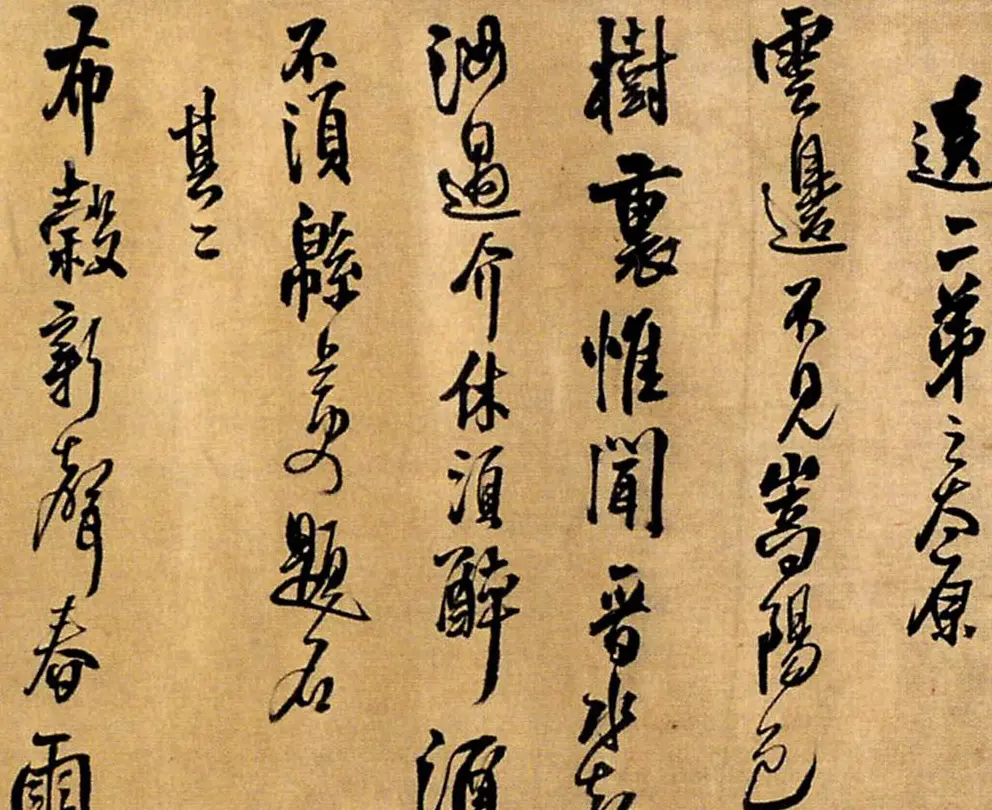 送二弟之太原
雲邊不見嵩陽色
樹裏惟聞晉水
汝過介休須醉酒
不須緜上題名
其二
布穀新聲春雨